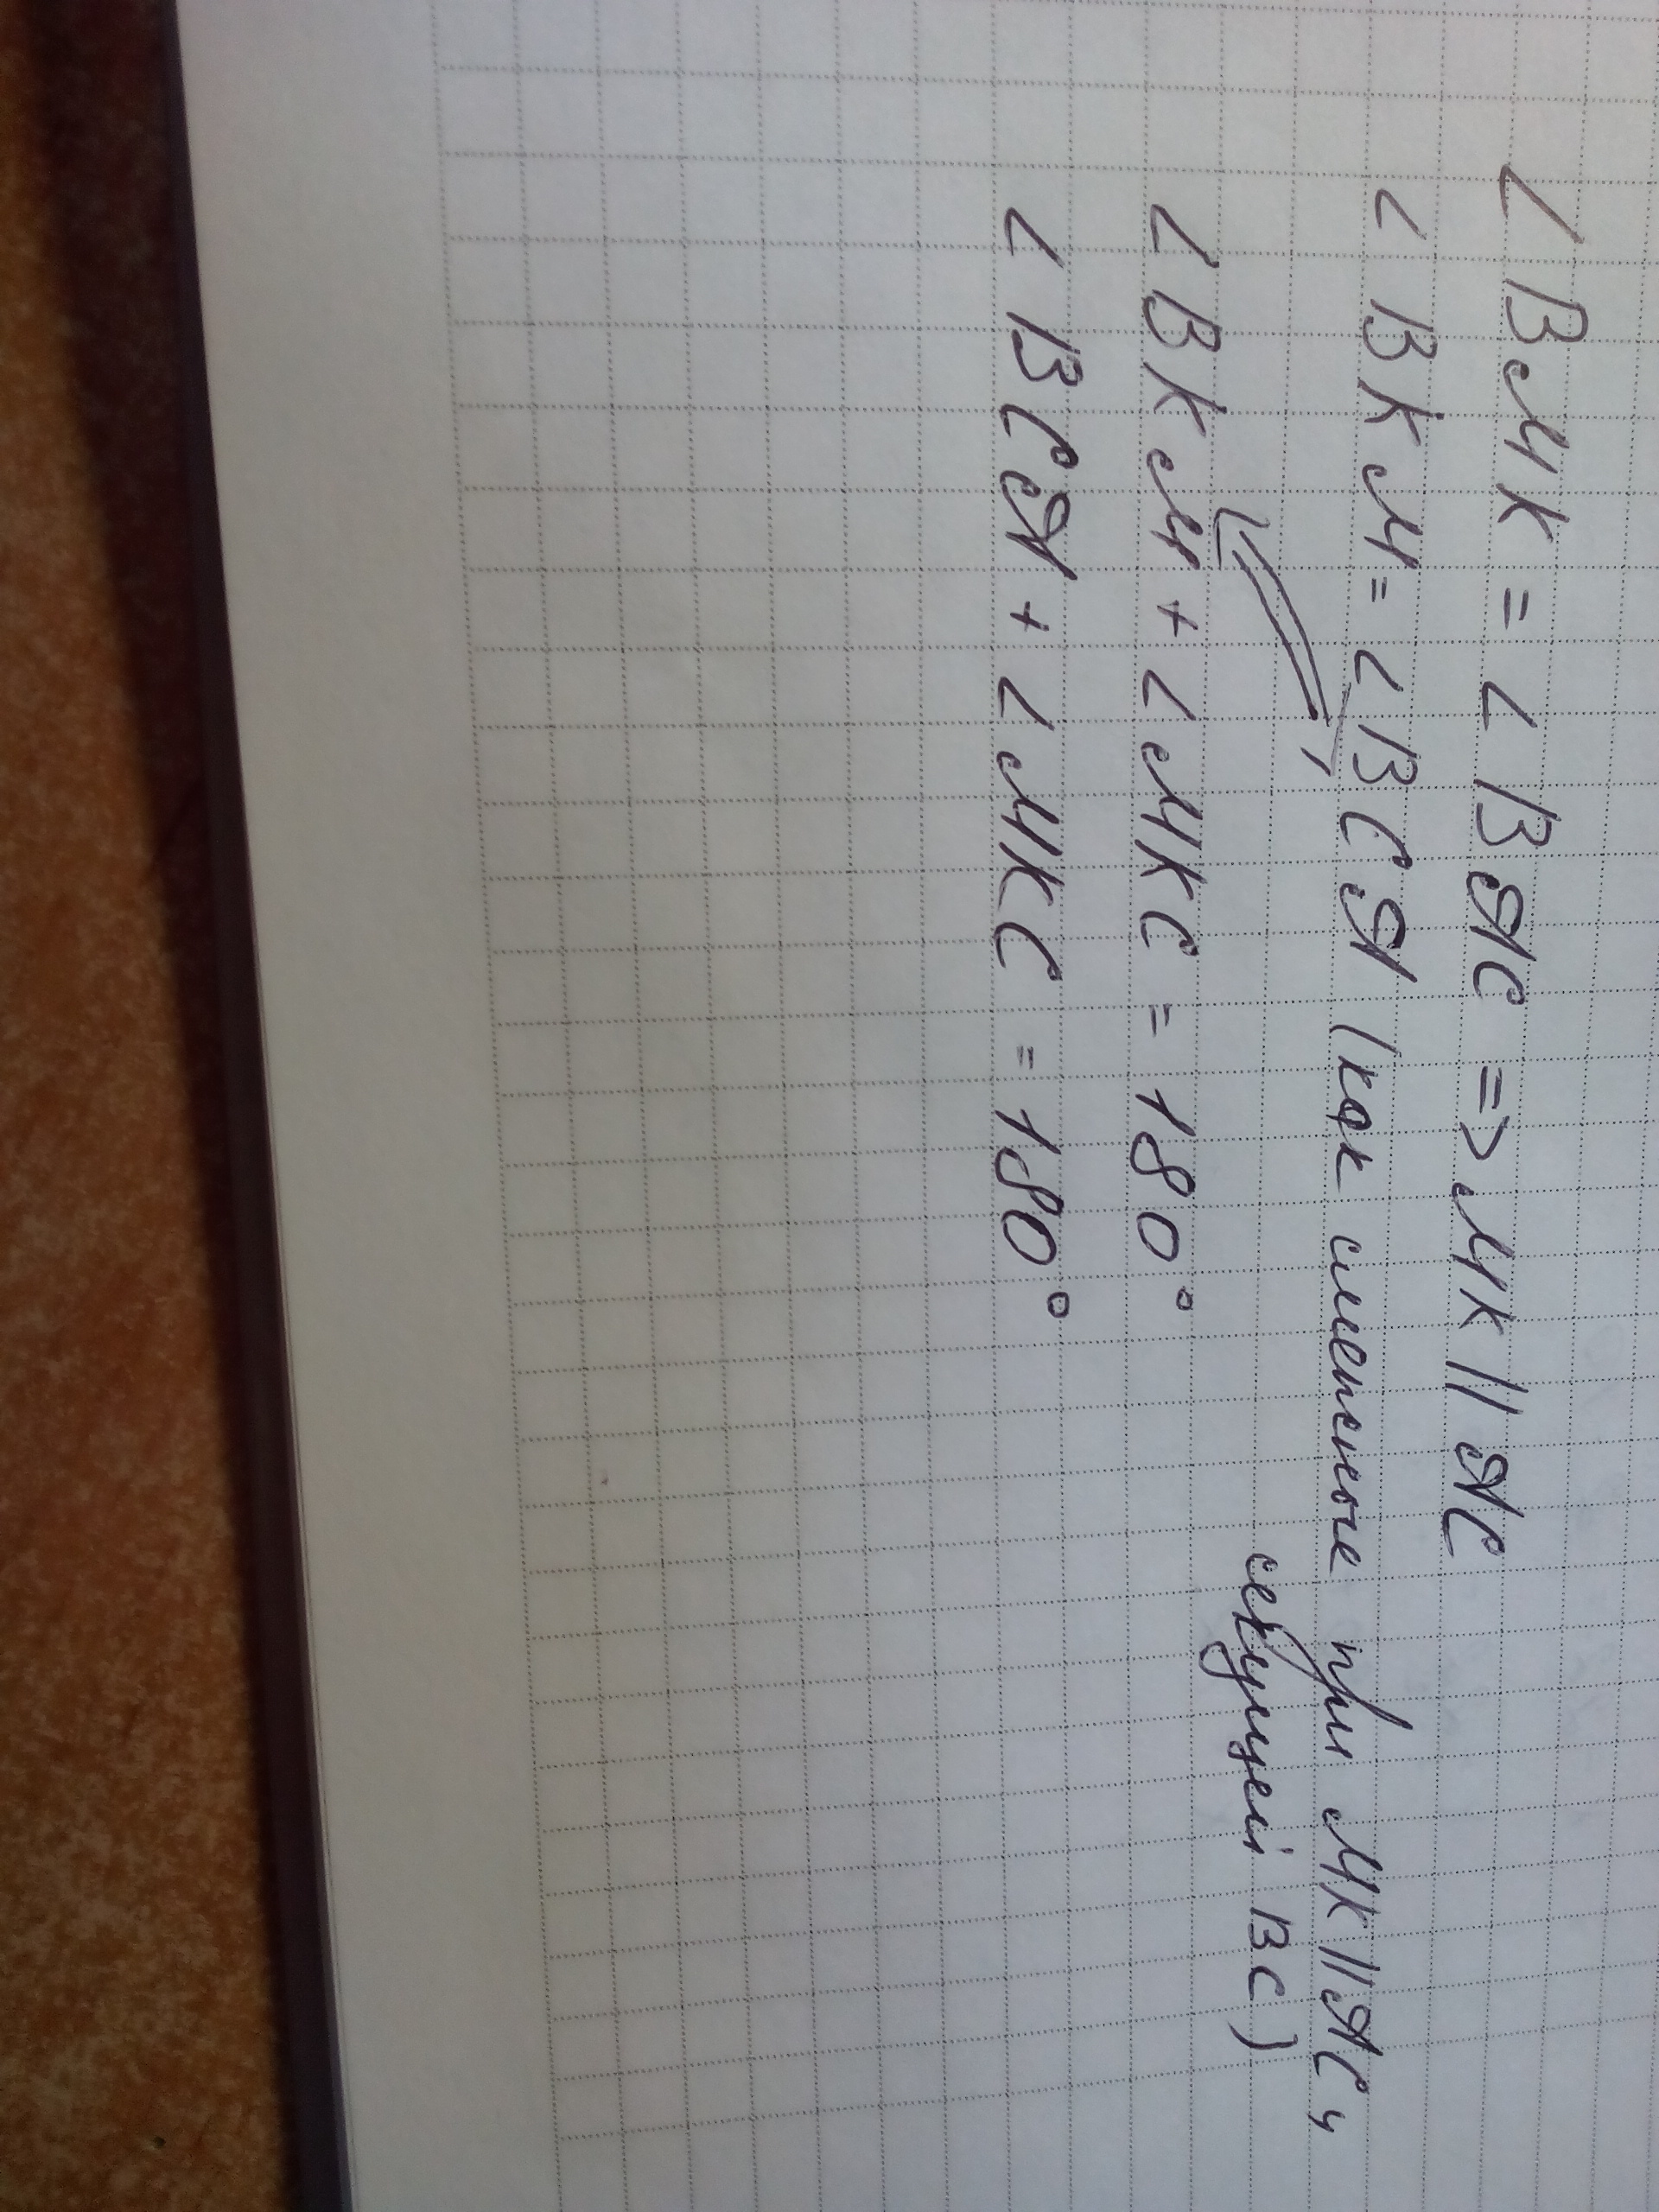 ∠ BMK = ∠ BAC => MK || AC
∠ BKM = ∠ BCA (как смежные при MK || AC и
секущей BC)
∠ BKM + ∠ MKC = 180°
∠ BCA + ∠ MKC = 180°